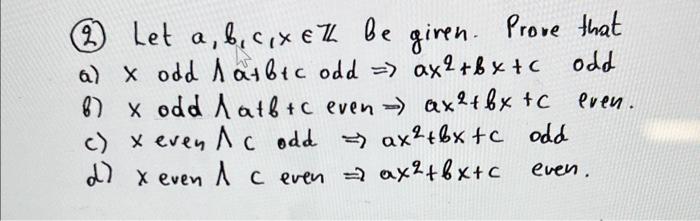 ② Let a, b, c, x ∈ ℤ be given. Prove that
a) x odd ∧ a+b+c odd ⇒ ax²+bx+c odd
b) x odd ∧ a+b+c even ⇒ ax²+bx+c even.
c) x even ∧ c odd ⇒ ax²+bx+c odd
d) x even ∧ c even ⇒ ax²+bx+c even.